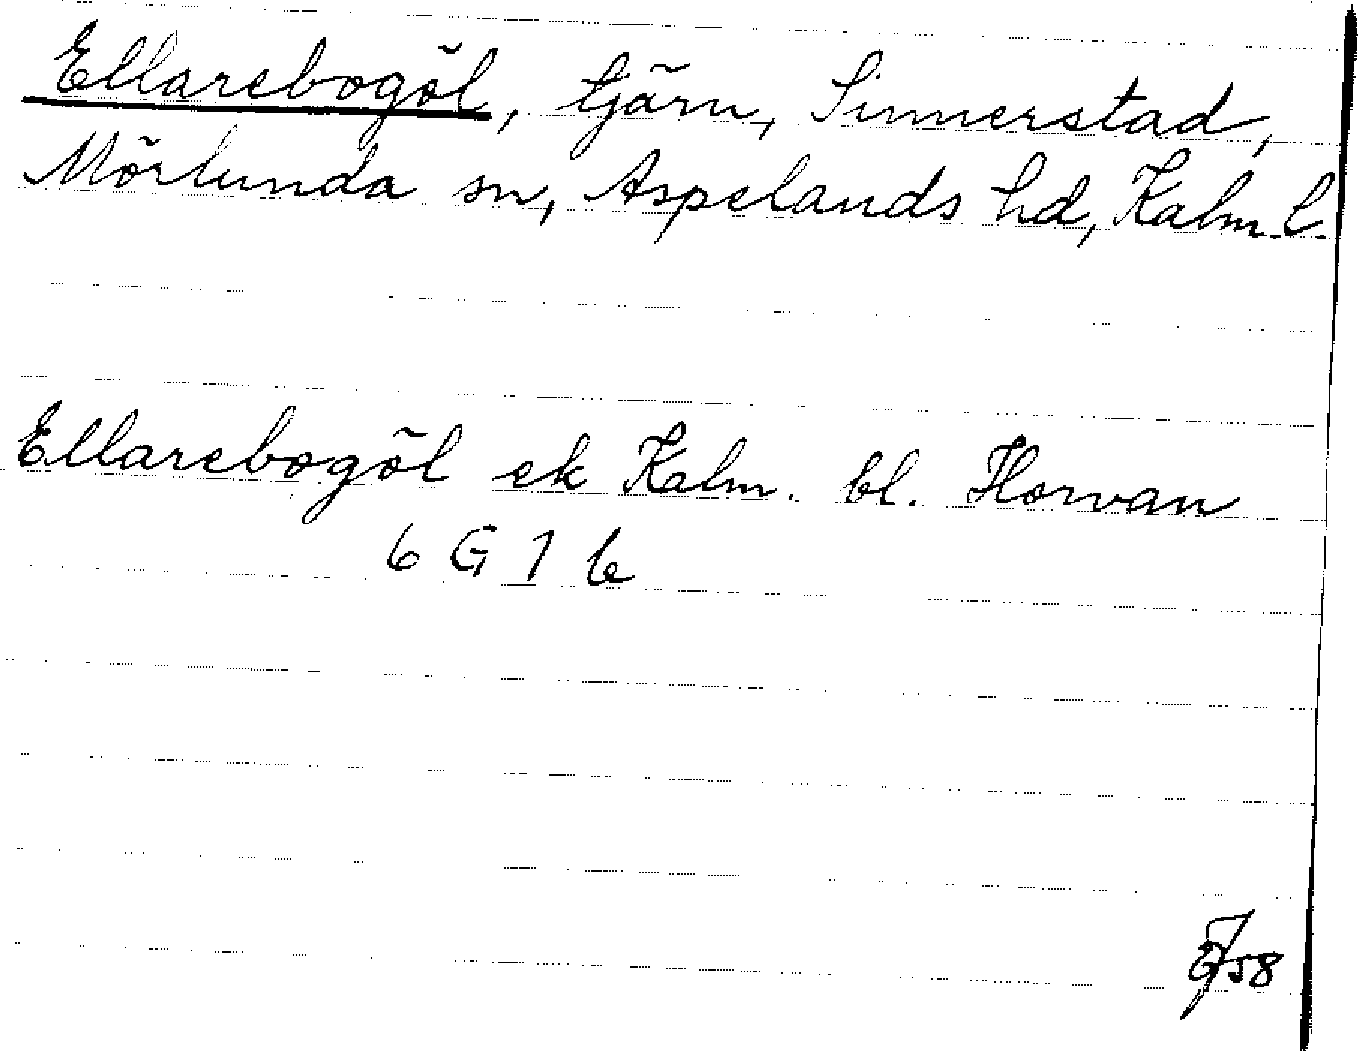 Ellarebogöl, tjärn, Sinnerstad,
Mörlunda sn, Aspelands hd, Kalm. l.
Ellarebogöl ek Kalm. bl. Horvan
6 G 1 b
58